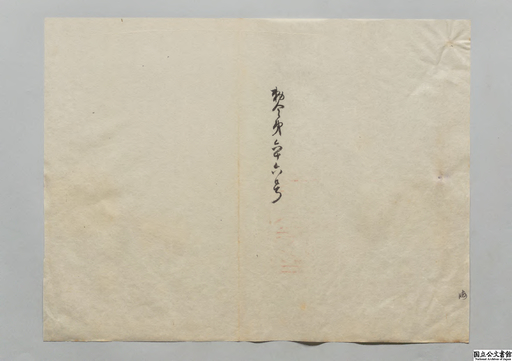 勅令第六十六号
国立公文書館
National Archives of Japan